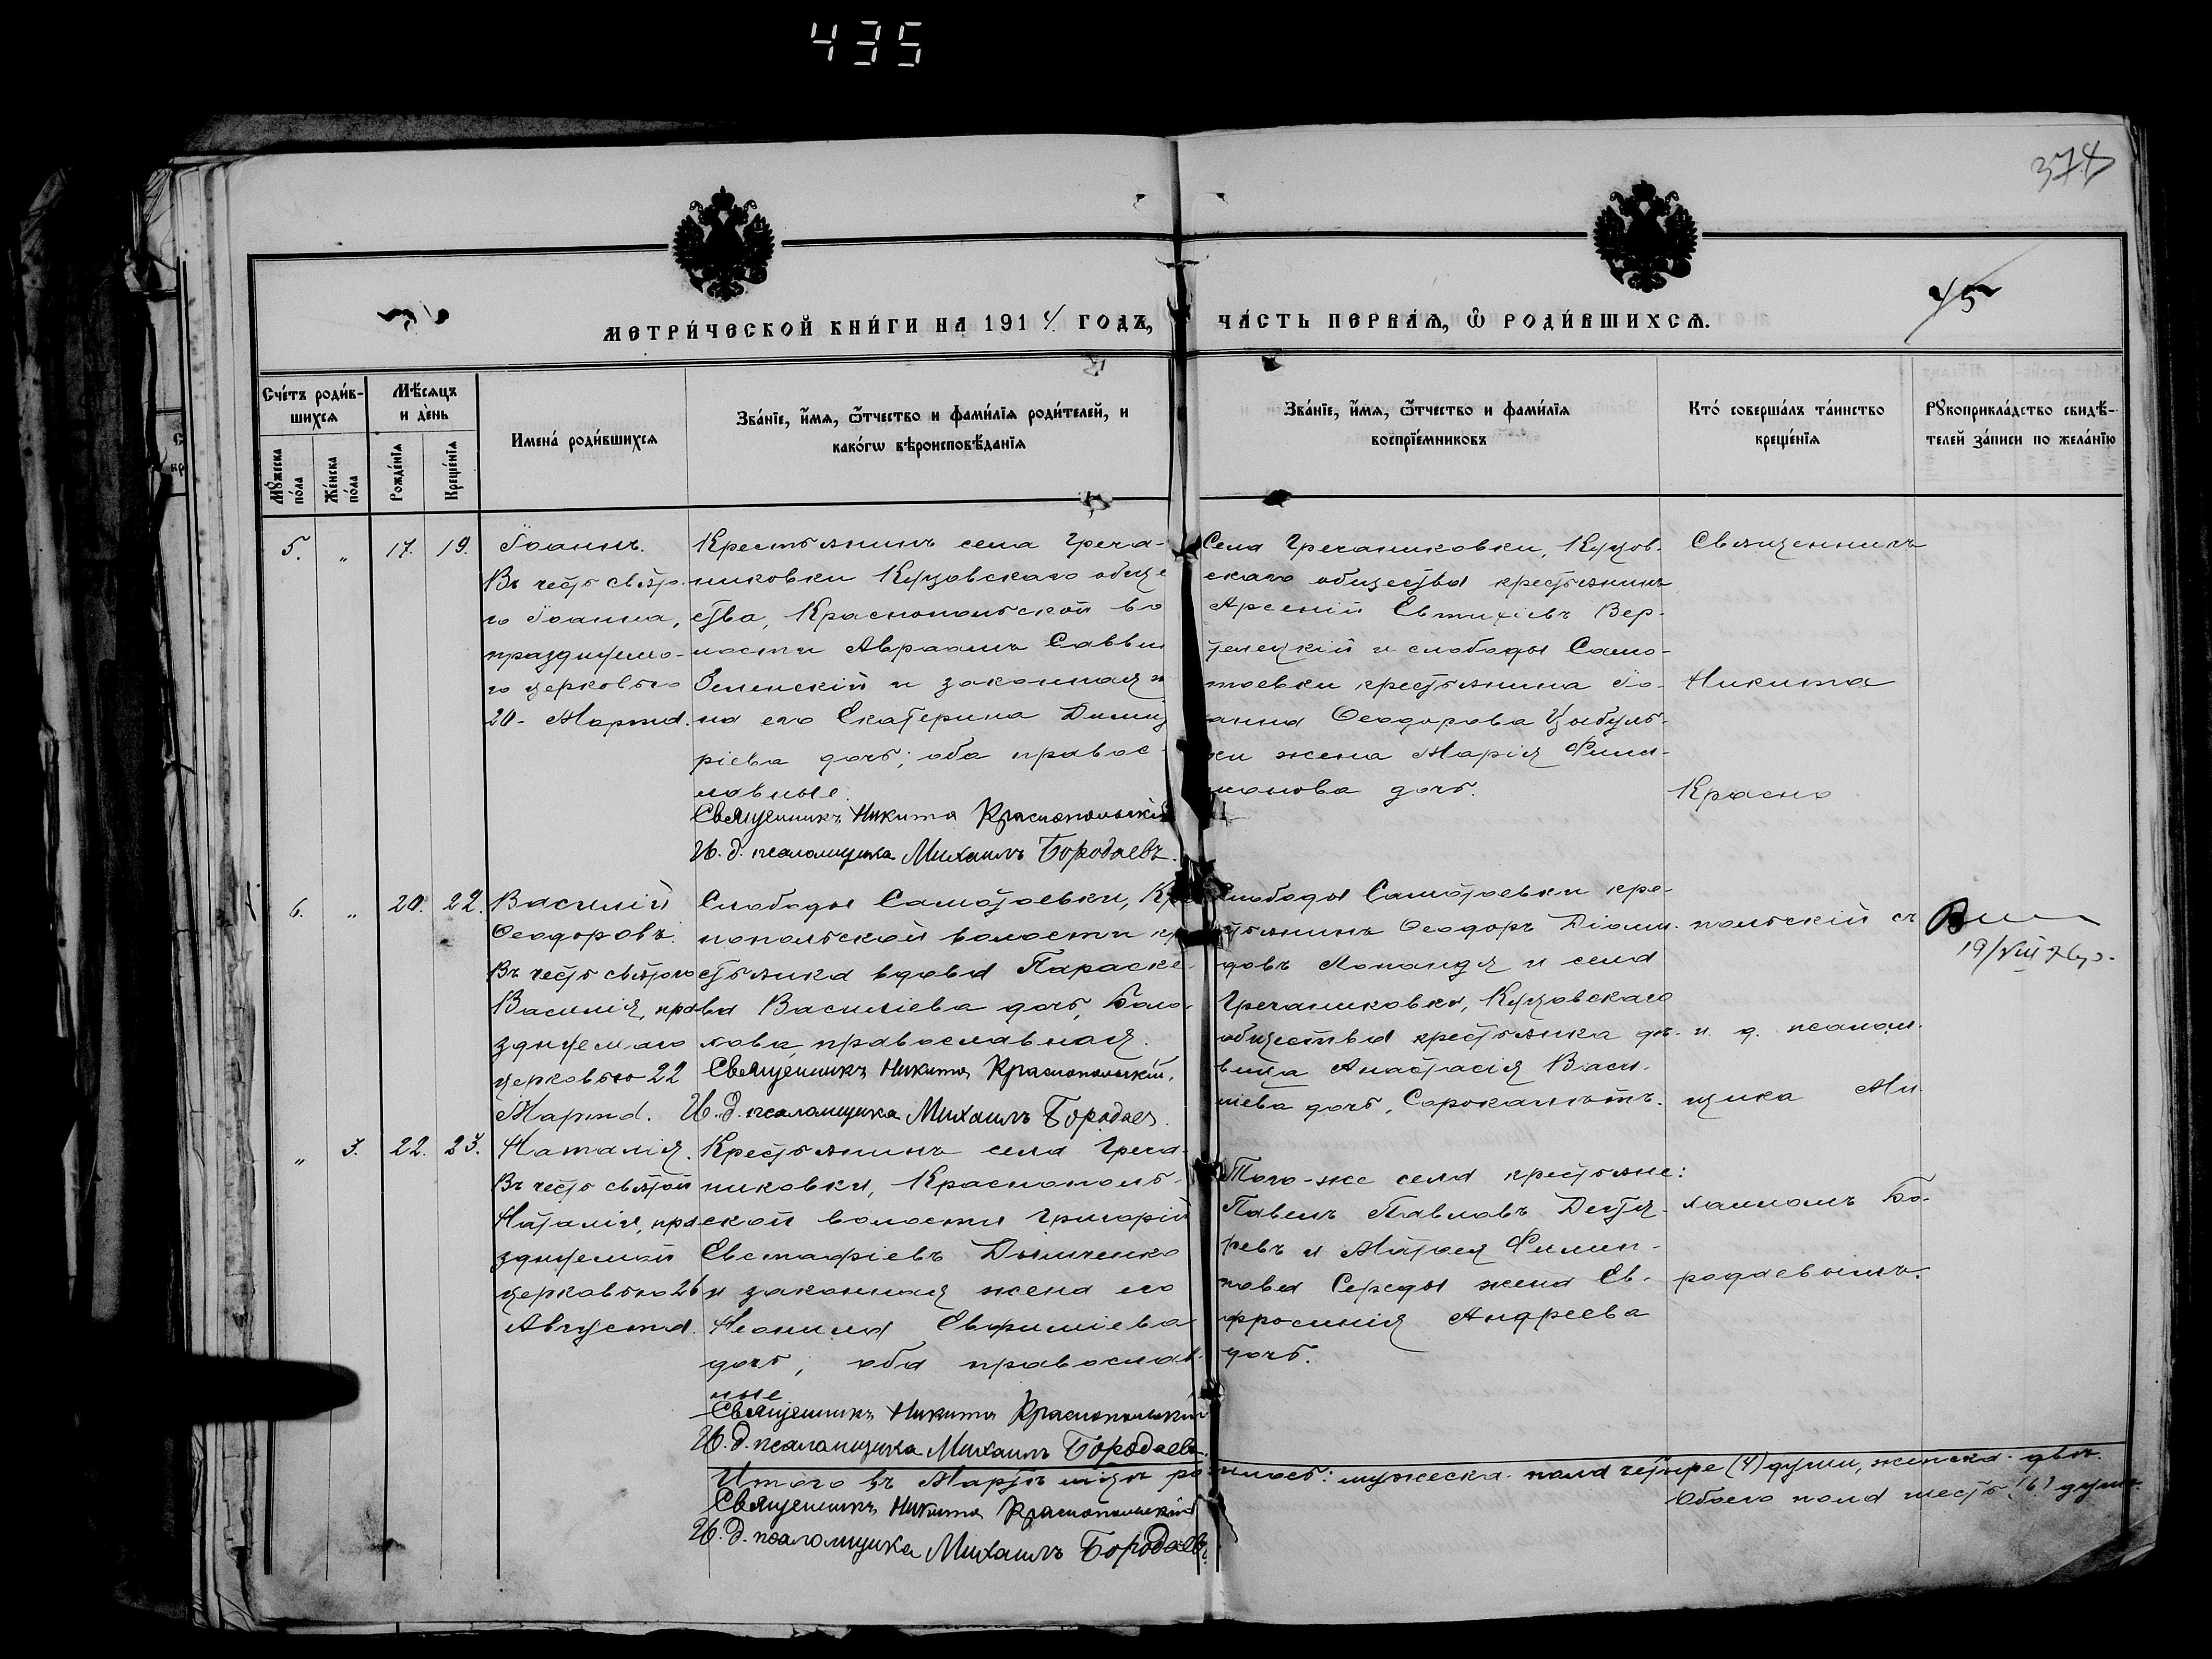 435
378
45
МЕТРИ́ЧЕСКОЙ КНИ́ГИ НА 1914 ГОДЪ,
ЧА́СТЬ ПЕРВА́Я, Ѡ РОДИ́ВШИХСЯ.
Сче́тъ роди́в-
шихся
Мѣ́сяцъ
и де́нь
Му́жеска
по́ла
Же́нска
по́ла
Рожде́нїя
Креще́нїя
Имена́ роди́вшихся
Зва́нїе, и́мя, ѻ́тчество и фами́лїя роди́телей, и
како́гѡ вѣроисповѣ́данїя
Зва́нїе, и́мя, ѻ́тчество и фами́лїя
воспрїе́мниковъ
Кто́ соверша́лъ та́инство
креще́нїя
Рꙋкоприкла́дство свидѣ́-
телей за́писи по жела́нїю
5. " 17. 19.
Іоаннъ.
Въ честь свято-
го Іоанна,
празднуемо-
го церковью
20- Марта.
Крестьянинъ села Греча-
никовки Куцовскаго обще
ства, Краснопольской во
лости Авраамъ Саввин
Зеленскій и законная ж
на его Екатерина Димит
ріева дочь; оба правос-
лавные.
Священникъ Никита Краснопольскій
И. д. псаломщика Михаилъ Бородаевъ.
Села Гречаниковки, Куцов-
скаго общества крестьянинъ
Арсеній Евтихіевъ Вер-
телецкій и слободы Само-
тоевки крестьянина Іо-
анна Феодорова Цыбуль-
ки жена Марія Фили-
монова дочь.
Священникъ
Никита
Красно
6. " 20. 22.
Василій
Феодоровъ.
Въ честь святого
Василія, пра
зднуемаго
церковью 22
Марта.
Слободы Самотоевки, Кра
нопольской волости кре
стьянка вдова Параске-
ва Васильева дочь,
православная.
Священникъ Никита Краснопольскій,
И. д. псаломщика Михаилъ Бородаев.
Слободы Самотоевки кре-
стьянинъ Феодоръ Діоми-
довъ и села
Гречаниковки, Куцовскаго
общества крестьянка дѣ-
вица Анастасія Васи-
ліева дочь, Сорокалѣтъ.
польскій съ
и. д. псалом-
щика Ми-
19/VIII
" 3. 22. 23.
Наталія.
Въ честь святой
Наталіи, пра
зднуемой
церковью 26
Августа.
Крестьянинъ села Греча-
никовки, Краснополь-
ской волости Григорій
Евстафіевъ Дьяченко
и законная жена его
Неонила Евфиміева
дочь; оба православ-
ные
Священникъ Никита Краснопольскій
И. д. псаломщика Михаилъ Бородаевъ.
Того-же села крестьяне:
Павелъ Павловъ Дегтя-
ревъ и Филип-
пова Середы жена Ев-
фросинія Андреева
дочь.
хаиломъ Бо-
родаевымъ.
Итого въ Мартѣ мѣсяцѣ родилось: мужеска пола четыре (4) души, женска двѣ.
Обоего пола шесть (6) душъ.
Священникъ Никита Краснопольскій
И. д. псаломщика Михаилъ Бородаевъ.